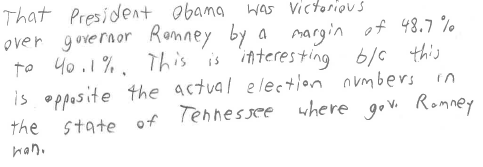 That President Obama was victorious
over governor Romney by a margin of 48.7%
to 40.1%. This is interesting b/c this
is opposite the actual election numbers in
the state of Tennessee where gov. Romney
won.